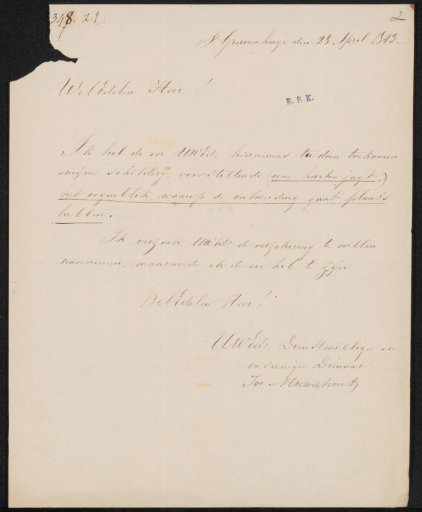 2
's Gravenhage den 28 April 1843.
WelEdelen Heer!
R.P.K.
Ik heb de eer UWEd: hiernevens te doen toekomen
mijne schilderij, voorstellende (een harten jagt,)
het oogenblik waarop de ontbinding gaat plaats
hebben.
Ik verzoek UWEd: de verzekering te willen
aannemen, waarmede ik de eer heb te zijn
WelEdelen Heer!
UWEd: Dienstwillige en
onderdanige Dienaar